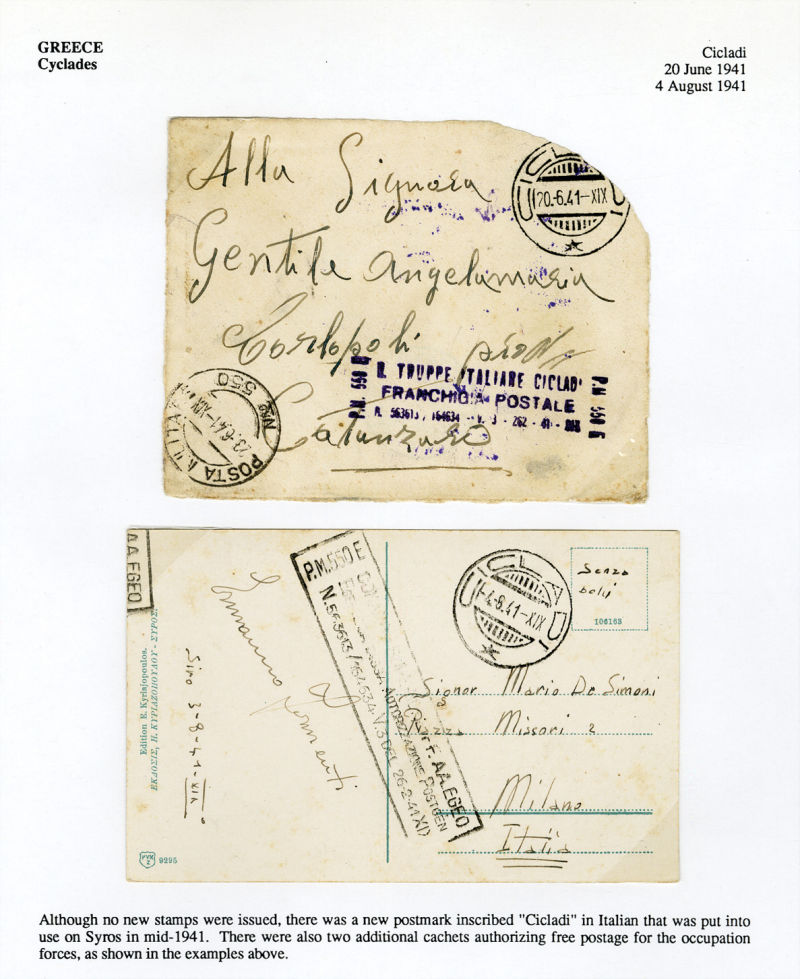 GREECE
Cyclades
Cicladi
20 June 1941
4 August 1941
Alla Signora
Gentile Angelamaria
Catanzaro
CICLADI
20.-6.41-XIX
R. TRUPPE ITALIANE CICLADI
FRANCHIGIA POSTALE
P.M. 550 E
POSTA MILITARE
Nro 550
23.-6.41-XIX
AA. EGEO
P.M. 550 E
AUTORIZZAZIONE POSTGEN
AA. EGEO
CICLADI
-4.8.41-XIX
Senza
bolli
106163
Edition E. Kyriajopoulos.
ΕΚΔΟΣΙΣ, Η. ΚΥΡΙΑΖΟΠΟΥΛΟΥ - ΣΥΡΟΣ
Siro 3-8-41-XIX
Signor Mario De Simoni
Missori 2
Milano
Italia
9295
Although no new stamps were issued, there was a new postmark inscribed "Cicladi" in Italian that was put into
use on Syros in mid-1941. There were also two additional cachets authorizing free postage for the occupation
forces, as shown in the examples above.